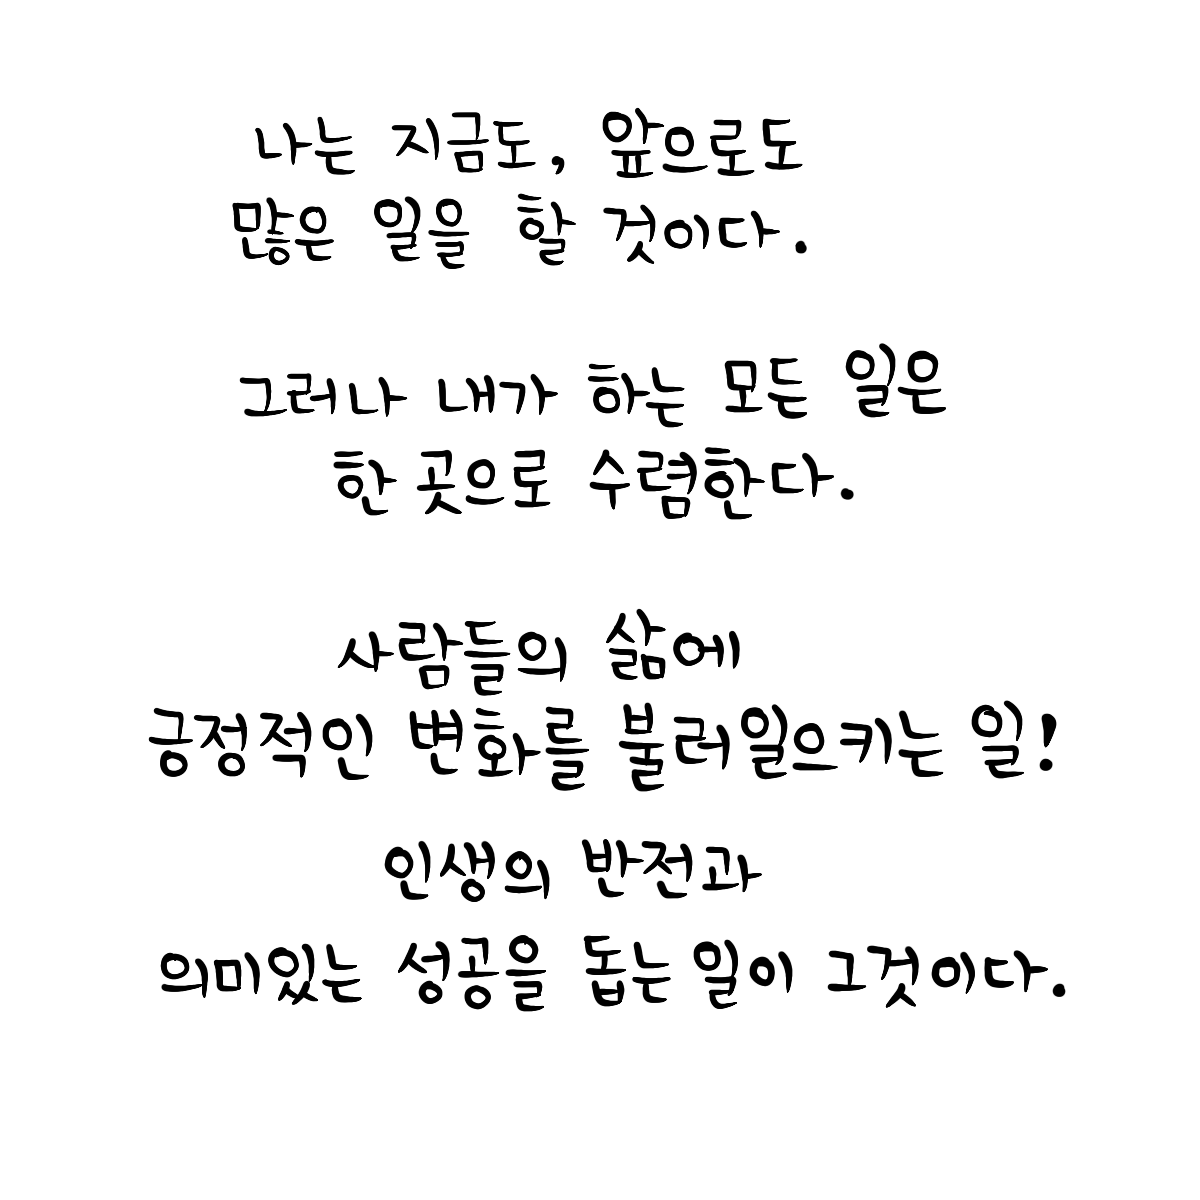 나는 지금도, 앞으로도
많은 일을 할 것이다.
그러나 내가 하는 모든 일은
한 곳으로 수렴한다.
사람들의 삶에
긍정적인 변화를 불러일으키는 일!
인생의 반전과
의미있는 성공을 돕는 일이 그것이다.